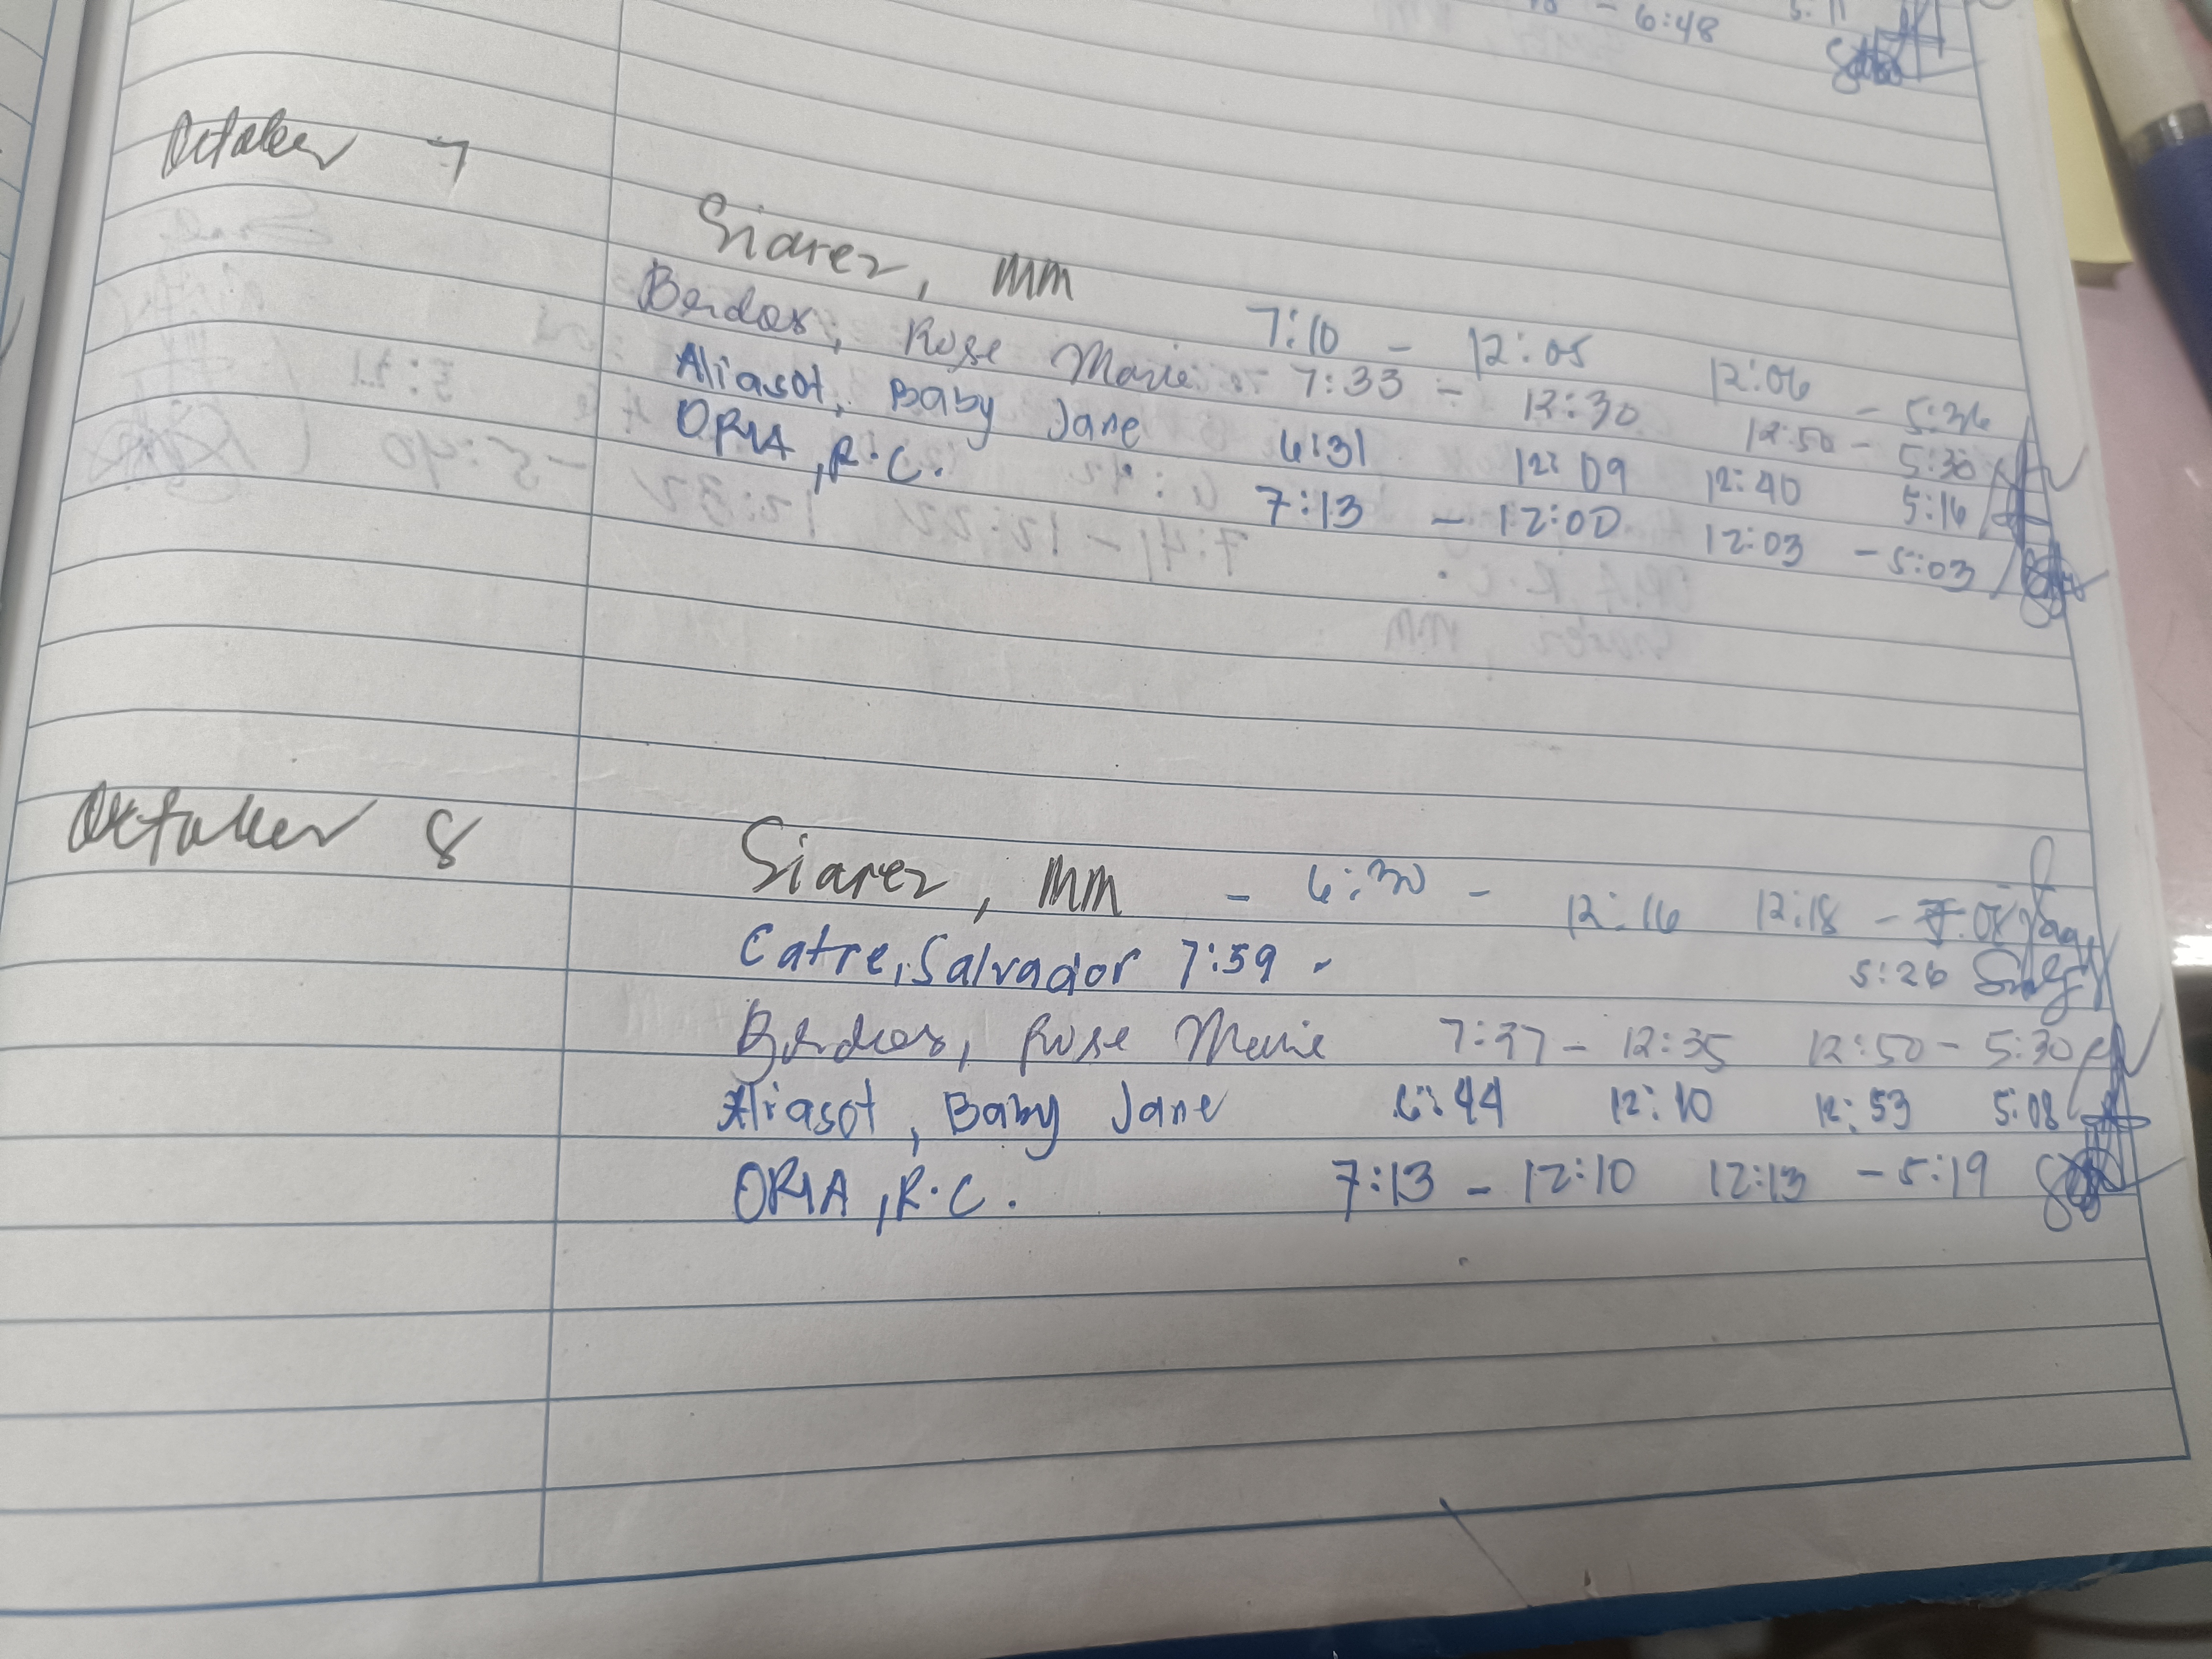 6:48 5:11
October 7
Siarez, MM 7:10 - 12:05 12:06 - 5:36
Berdos, Rose Marie 7:33 - 12:30 12:50 - 5:30
Aliasot, Baby Jane 6:31 12:09 12:40 5:16
ORIA, R.C. 7:13 - 12:00 12:03 - 5:03
October 8
Siarez, MM - 6:30 - 12:16 12:18 -
Catre, Salvador 7:59 - 5:26
Berdos, Rose Marie 7:37 - 12:35 12:50 - 5:30
Aliasot, Baby Jane 6:44 12:10 12:53 5:08
ORIA, R.C. 7:13 - 12:10 12:13 - 5:19